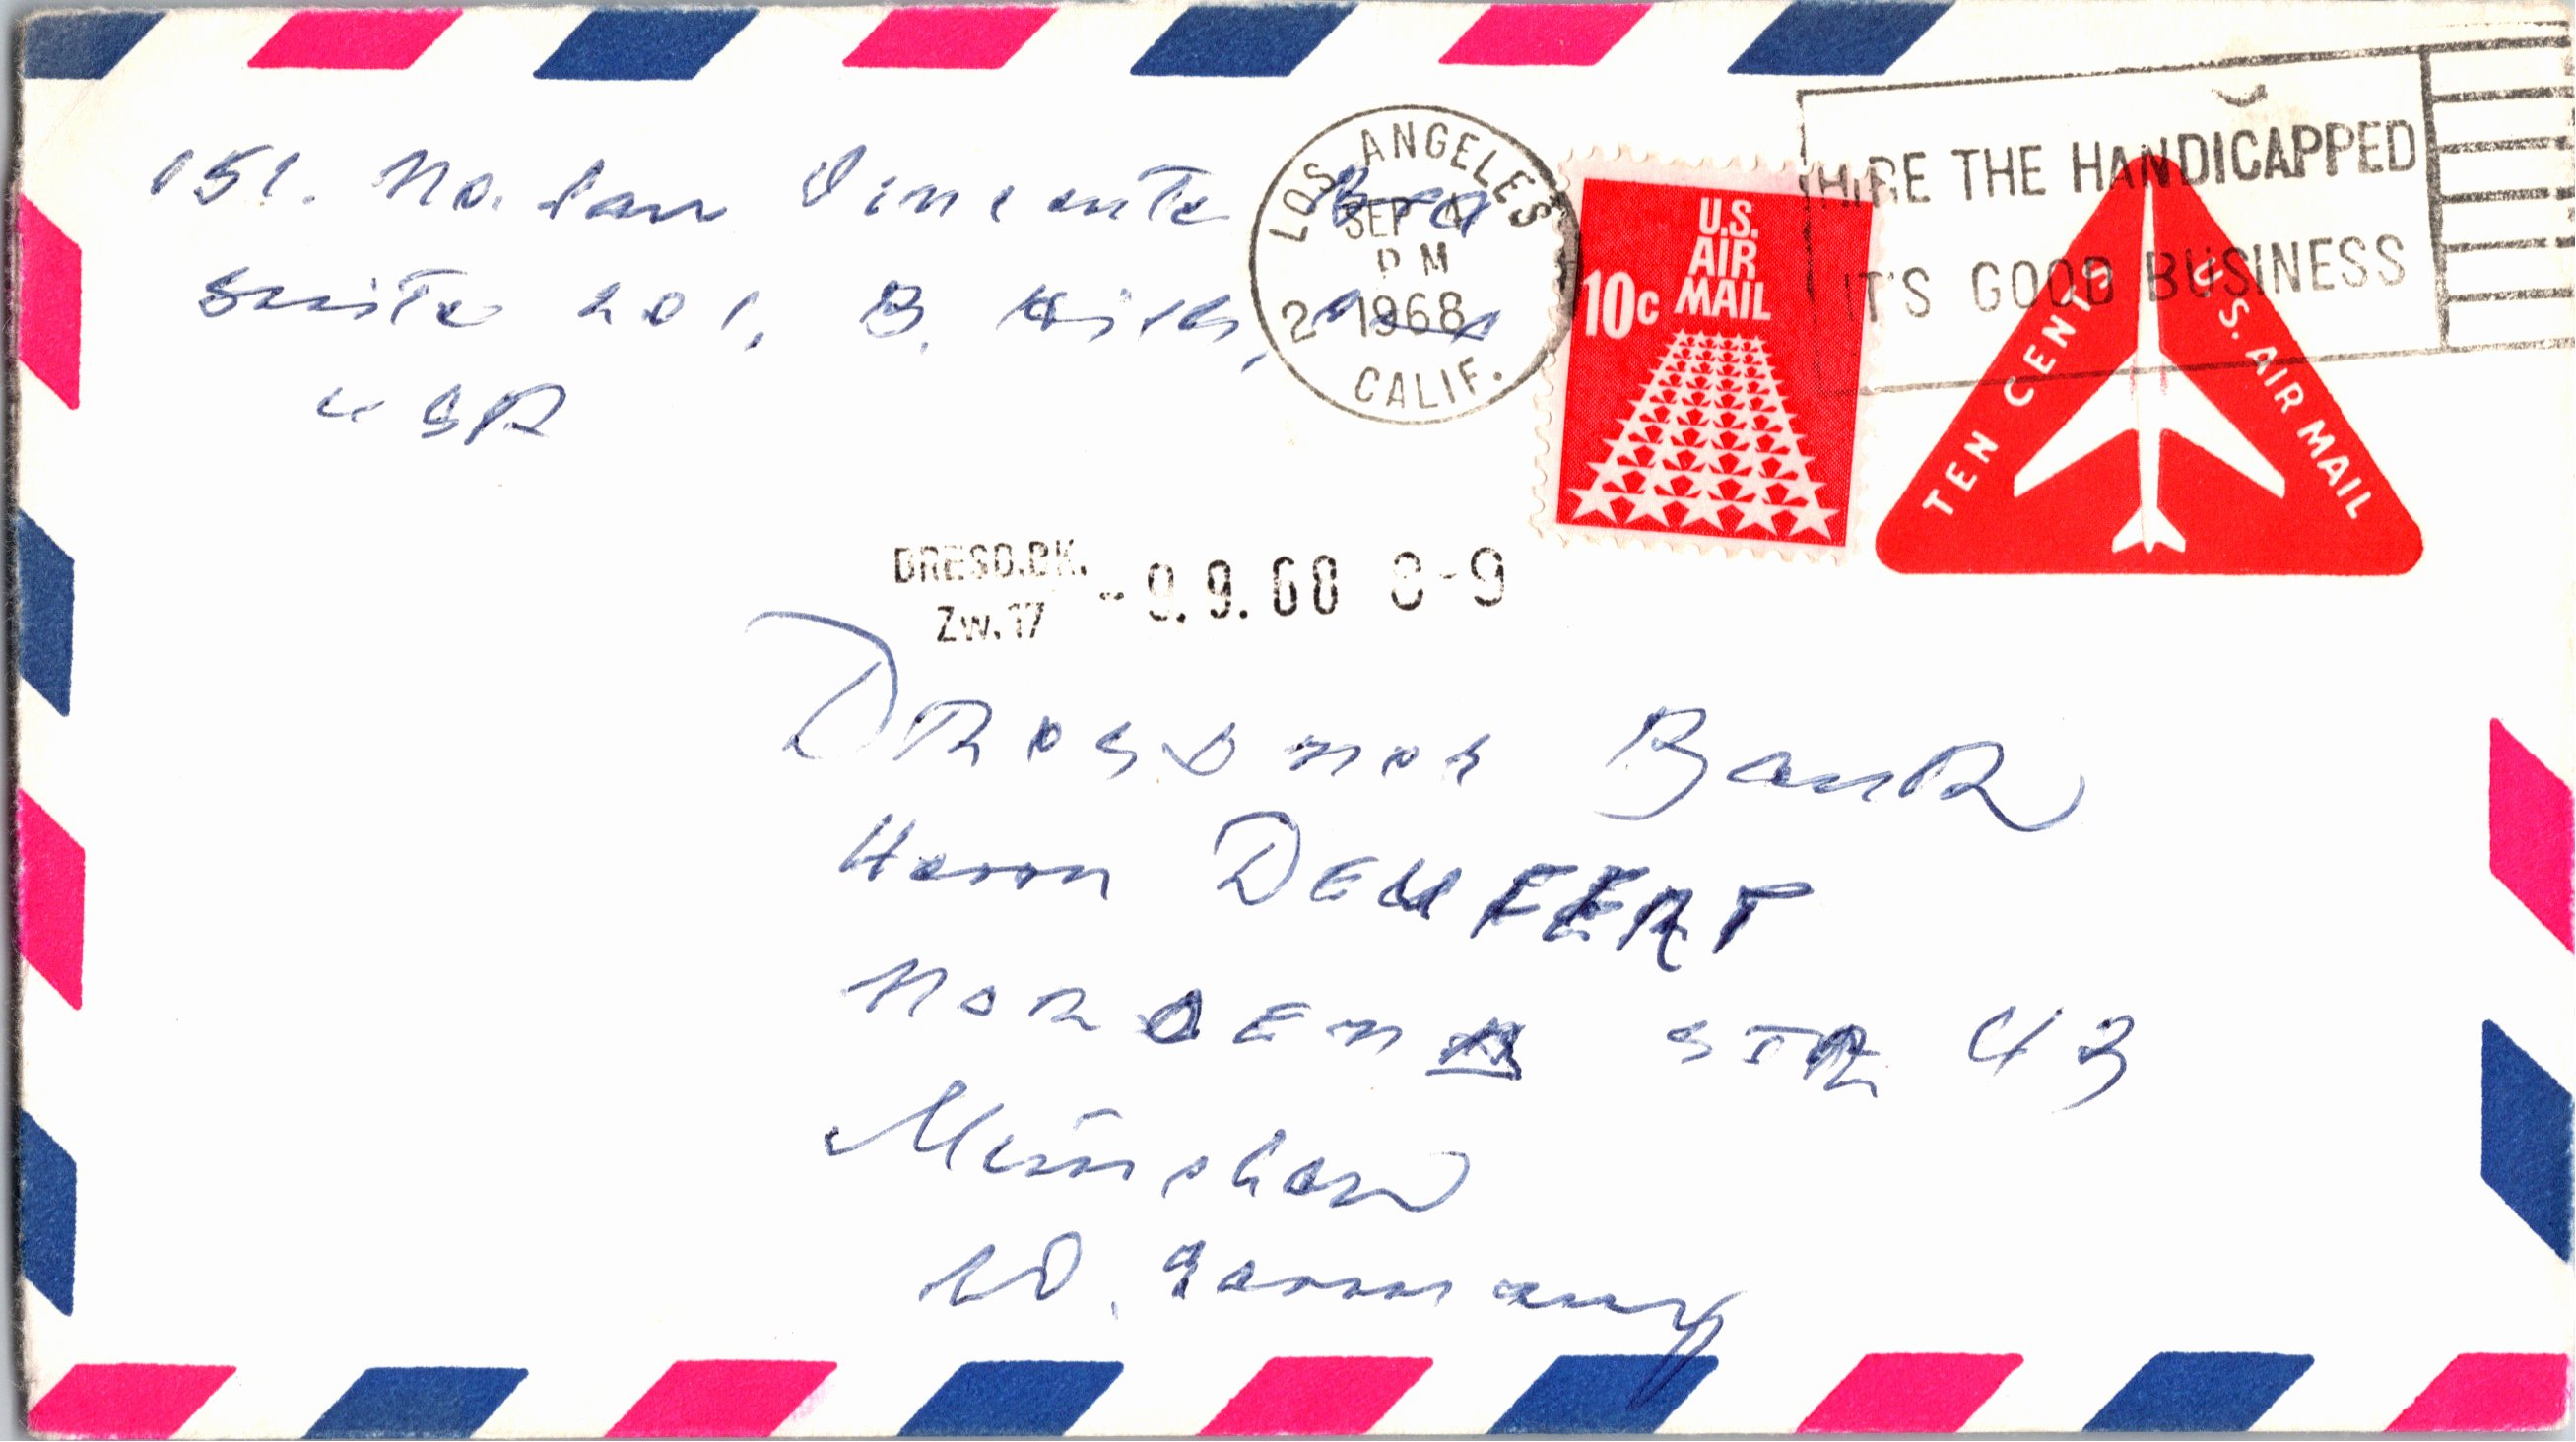 151. No. San Vincente Bld
Suite 201, B. Hills,
USA
LOS ANGELES
SEP 4
PM
2 1968
CALIF.
HIRE THE HANDICAPPED
IT'S GOOD BUSINESS
U.S.
AIR
MAIL
10c
TEN CENTS
U.S. AIR MAIL
DRESD.BK.
Zw.17
-9.9.68 8-9
Dresdner Bank
Herrn DEUFERT
NORDEN STR 43
München
W. Germany